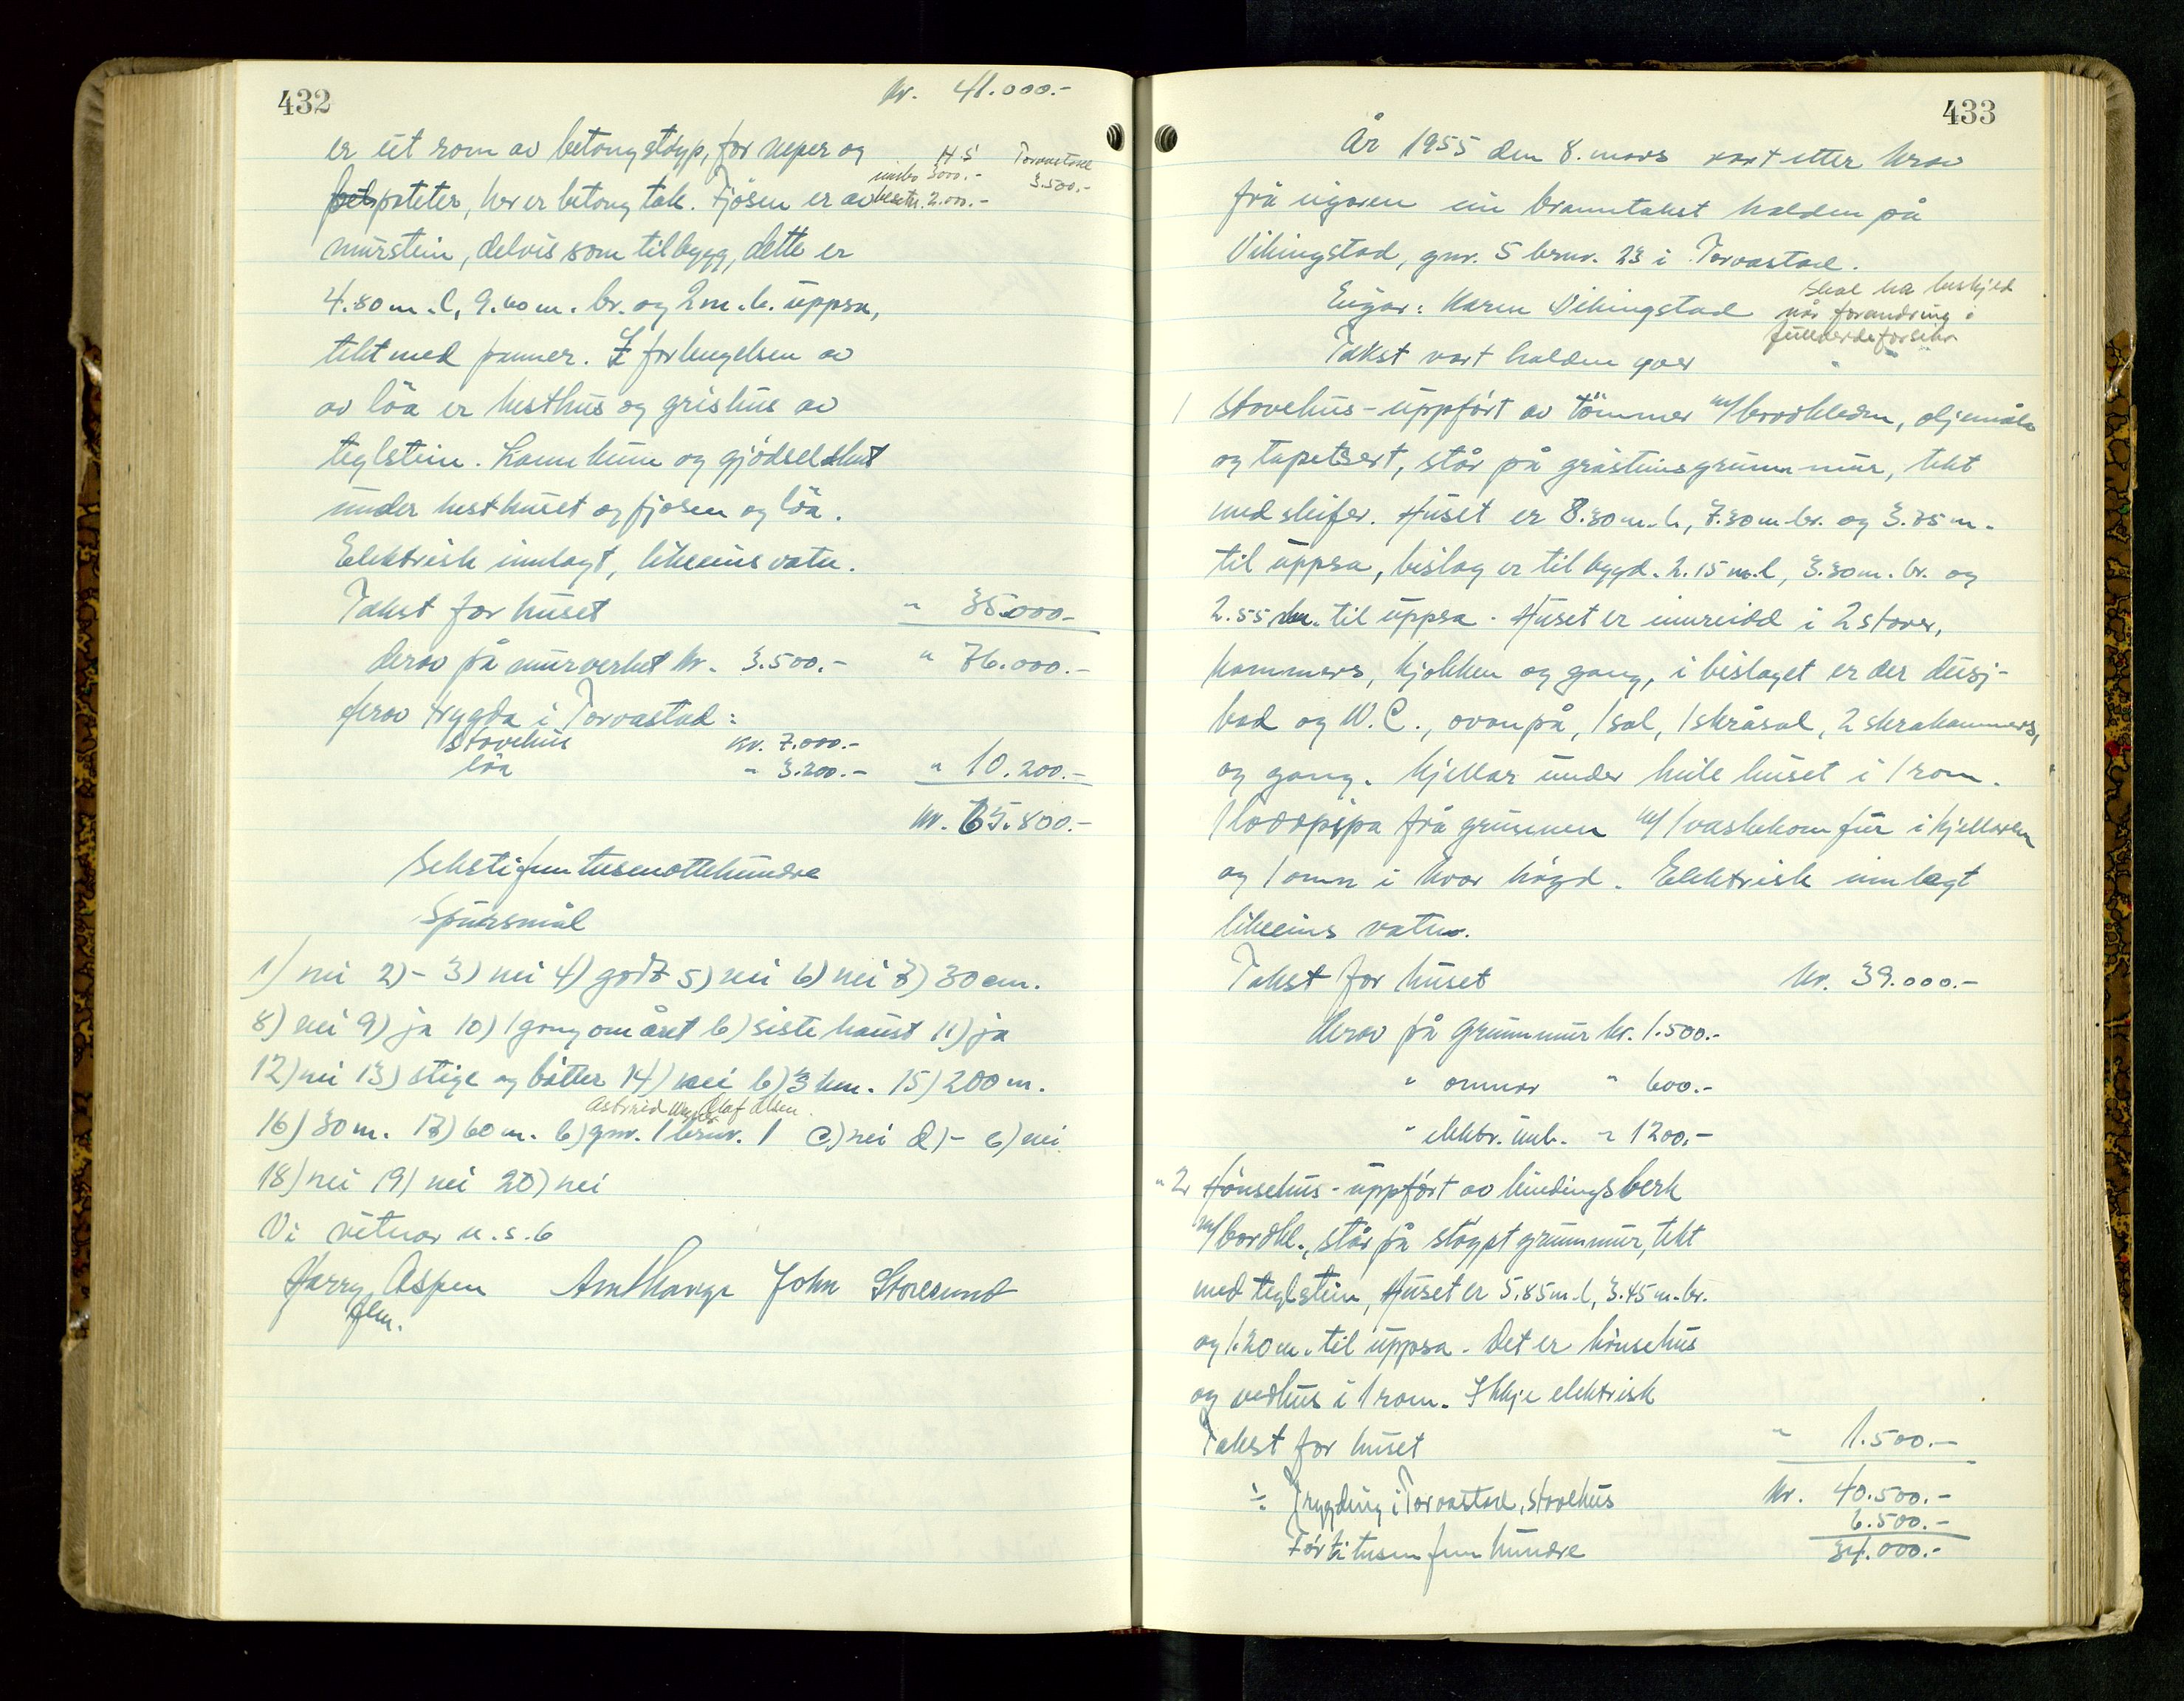 432
kr. 41.000.-
er eit rom av betongstøyp, for neper og
poteter, her er betong tak. Fjøsen er av
H.S Torvastad
innbo 3000.- 3.500.-
besetn. 2.000.-
murstein, delvis som tilbygg, dette er
4.80 m. l, 9.60 m. br. og 2 m. h. uppsa,
tekt med panner. I forlengelsen av
av løa er hesthus og grishus av
teglstein. Land kum og gjødselskut
under hesthuset og fjøsen og løa.
Elektrisk innlagt, likeeins vatn.
Takst for huset " 35.000.-
derav på murverket kr. 3.500.- " 76.000.-
derav trygda i Torvastad:
stovehus kr. 7.000.-
løa " 3.200.- " 10.200.-
kr. 65.800.-
Sekstifemtusenottehundre
Spursmål
1) nei 2) - 3) nei 4) godt 5) nei 6) nei 7) 30 cm.
8) nei 9) ja 10) 1 gong om året b) siste haust 11) ja
12) nei 13) stige og bøtter 14) nei b) 3 km. 15) 200 m.
Astrid Olaf Olsen
16) 30 m. 17) 60 m. b) gnr. 1 brnr. 1 c) nei d) - e) nei
18) nei 19) nei 20) nei
Vi vitnar u.s.b
Harry Aspen John Storesund
flm.
433
År 1955 den 8. mars vart etter krav
frå eigaren ein branntakst halden på
Vikingstad, gnr. 5 brnr. 23 i Torvastad.
Eigar: Karen Vikingstad
Skal ha beskjed
når forandring i
fullverdiforsikr.
Takst vart halden over
1 Stovehus - uppført av tømmer m/bordkledn, oljemåla
og tapetsert, står på gråsteinsgrunnmur, tekt
med skifer. Huset er 8.30 m. l, 7.30 m. br. og 3.75 m.
til uppsa, bislag er til bygd. 2.15 m. l, 3.30 m. br. og
2.55 m. til uppsa. Huset er innreidd i 2 stover,
kammers, kjøkken og gang, i bislaget er der dusj-
bad og W.C., ovanpå, 1 sal, 1 skråsal, 2 skrakammers,
og gang. Kjellar under heile huset i 1 rom.
1 loddpipa frå grunnen m/1 vaskekomfur i kjellaren
og 1 omn i kvar høgd. Elektrisk innlagt
likeeins vatn.
Takst for huset kr. 39.000.-
derav på grunnmur kr. 1.500.-
" omnar " 600.-
" elektr. inl. " 1200.-
" 2. Hønsehus - uppført av bindingsverk
m/bordkl., står på støypt grunnmur, tekt
med teglstein, Huset er 5.85 m. l, 3.45 m. br.
og 1.20 m. til uppsa. Det er hønsehus
og vedhus i 1 rom. Ikkje elektrisk
Takst for huset " 1.500.-
kr. 40.500.-
÷ Trygding i Torvastad, stovehus 6.500.-
Førti tusen fem hundre 34.000.-